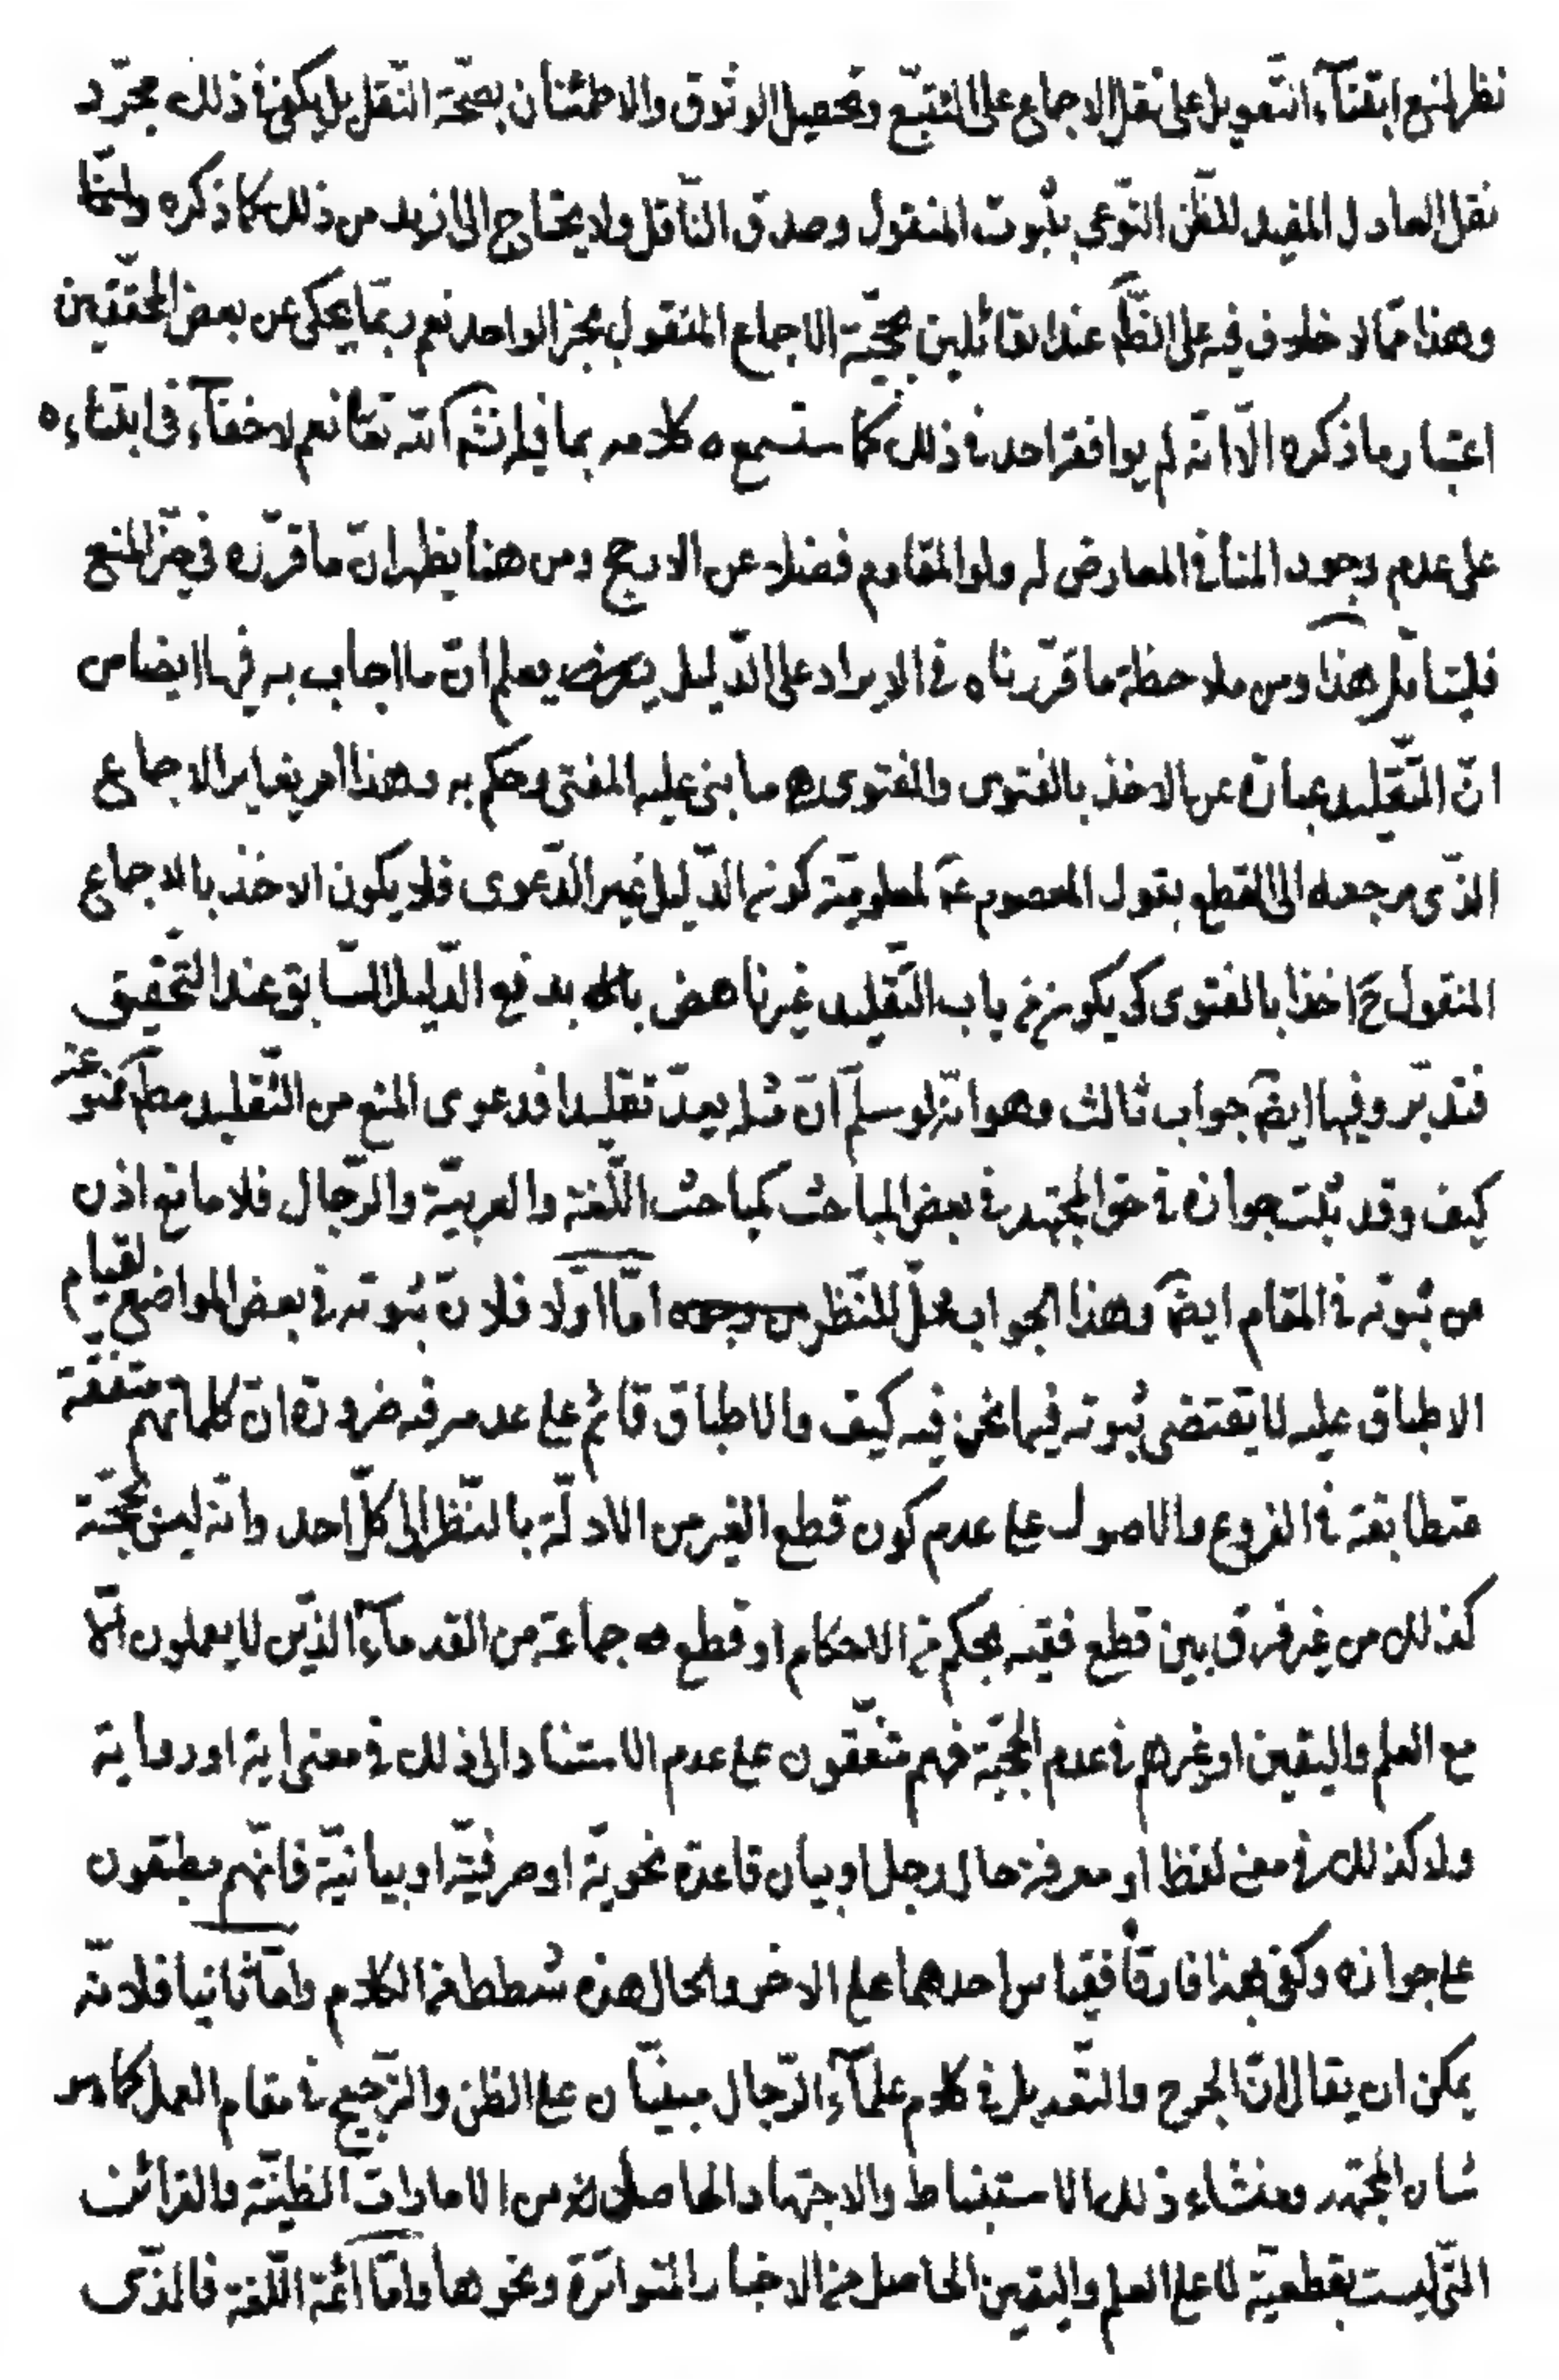 نظر لمنع ابتنآء التعويل على نقل الاجماع على التتبّع وتحصيل الوثوق والاطمئنان بصحّة النّقل بل يكفى فى ذلك مجرّد
نقل العادل المفيد للظّن النّوعى بثبوت المنقول وصدق النّاقل ولا يحتاج الى ازيد من ذلك كما ذكره
وهذا ممّا لا خلاف فيه على الظّ عند القائلين بحجّيّة الاجماع المنقول بخبر الواحد نعم ربّما يحكى عن بعض المحقّقين
اعتبار ما ذكره الّا انّه لم يوافقه احد فى ذلك كما ستسمع كلامه بما فيه انش‍ آللّه تعا نعم لا خفآء فى ابتناءه
على عدم وجود المنافى المعارض له ولو المقاوم فضلا عن الارجح ومن هنا يظهر انّ ما قرّره فى حيّز المنع
فليتامّل هذا ومن ملاحظة ما قرّرناه فى الايراد على الدّليل يعلم انّ ما اجاب به فيها ايضا من
انّ التّقليد عبارة عن الاخذ بالفتوى والفتوى ما بنى عليه المفتى وحكم به وهذا امر يغاير الاجماع
الذّى مرجعه الى القطع بقول المعصوم ع‍ لمعلوميّة كون الدّليل غير الدّعوى فلا يكون الاخذ بالاجماع
المنقول ح‍ اخذا بالفتوى كى يكون من باب التّقليد غير ناهض بدفع الدّليل السّابق عند التّحقيق
فتدبّر وفيها ايض‍ جواب ثالث وهو انّه لو سلّم انّ مثله يعدّ تقليدا فدعوى المنع من التّقليد مط‍ ممنوعة
كيف وقد ثبت جوازه فى حق المجتهد فى بعض المباحث كمباحث اللّغة والعربيّة والرّجال فلا مانع اذن
من ثبوته فى المقام ايض‍ وهذا الجواب محلّ للنّظر امّا اوّلا فلانّ ثبوته فى بعض المواضع لقيام
الاطباق عليه لا يقتضى ثبوته فيما نحن فيه كيف والاطباق قائم على عدمه فيه ضرورة انّ كلماتهم متفقة
متطابقة فى الفروع والاصول على عدم كون قطع الغير من الادلّة بالنّظر الى كلّ احد وانّه ليس بحجّة
كذلك من غير فرق بين قطع فقيه بحكم من الاحكام او قطع جماعة من القدمآء الذّين لا يعملون الّا
مع العلم واليقين او غيرهم فى عدم الحجيّة فهم متّفقون على عدم الاستناد الى ذلك فى معنى اية او رواية
ولا كذلك فى معنى لفظ او معرفة حال رجل او بيان قاعدة نحويّة او صرفيّة او بيانيّة فانّهم مطبقون
على جوازه وكفى بهذا فارقا فقياس احدهما على الاخر والحال هذه شطط من الكلام وامّا ثانيا فلانّه
يمكن ان يقال انّ الجرح والتّعديل فى كلام علمآء الرّجال مبنيّان على الظن والتّرجيح فى مقام العمل كما هو
شان المجتهد ومنشاء ذلك الاستنباط والاجتهاد الحاصلان من الامارات الظنيّة والقرائن
التّى ليست بقطعيّة لا على العلم واليقين الحاصل من الاخبار المتواترة ونحوها وامّا ائمّة اللّغة فالذّى